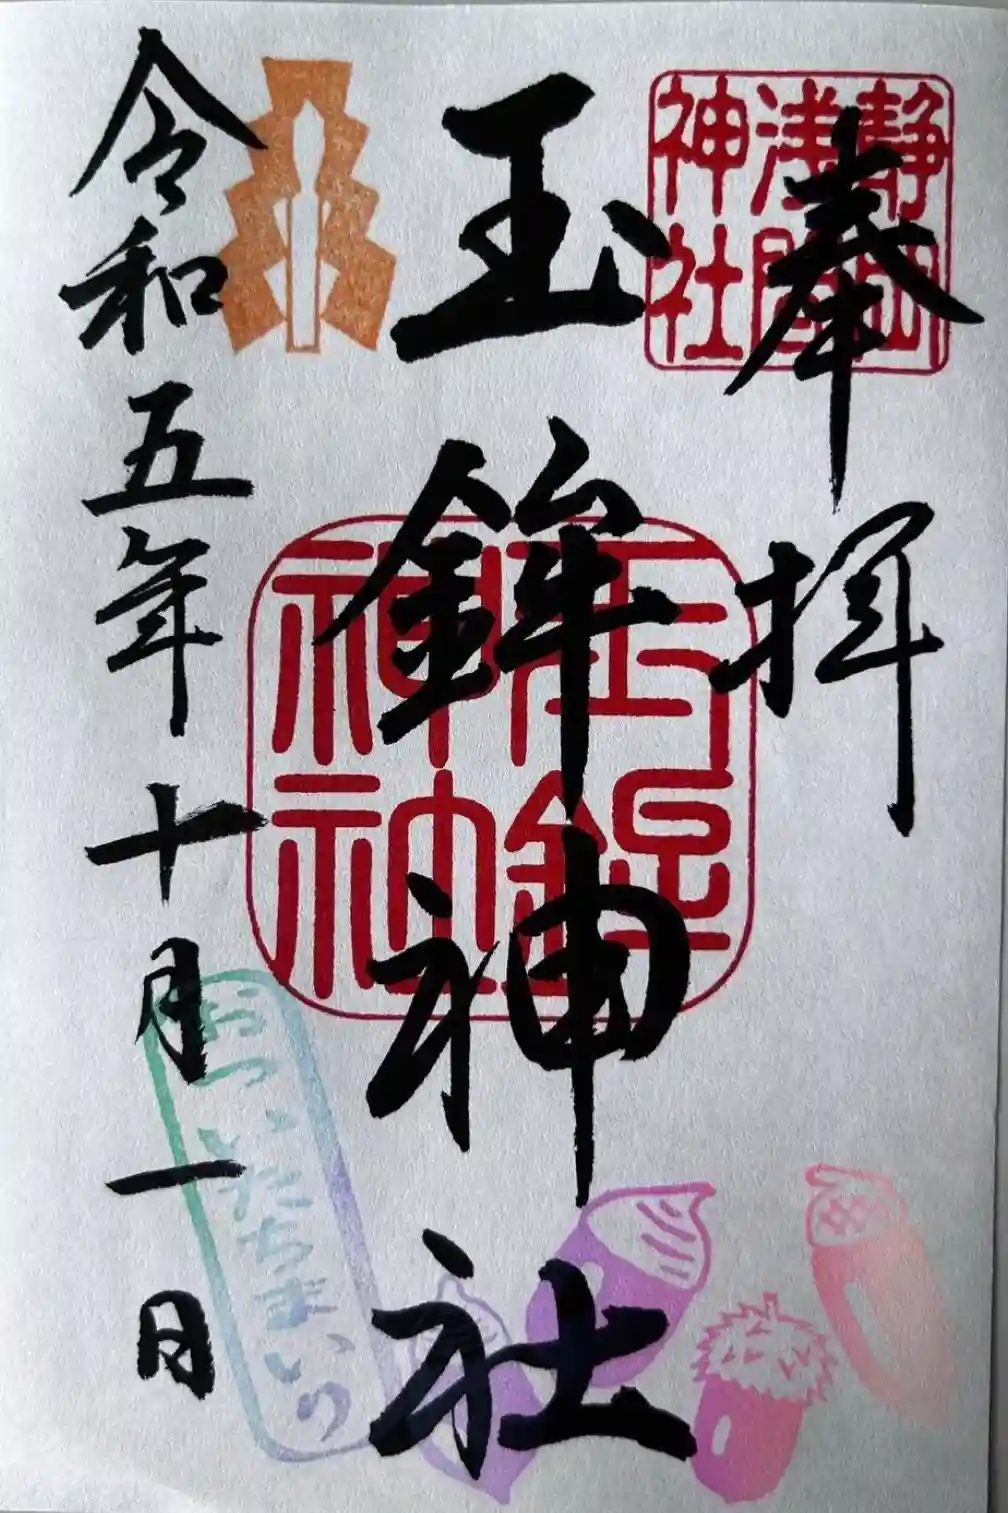 奉拝
静岡浅間神社
玉鉾神社
玉鉾神社
令和五年十月一日
おついたちまいり